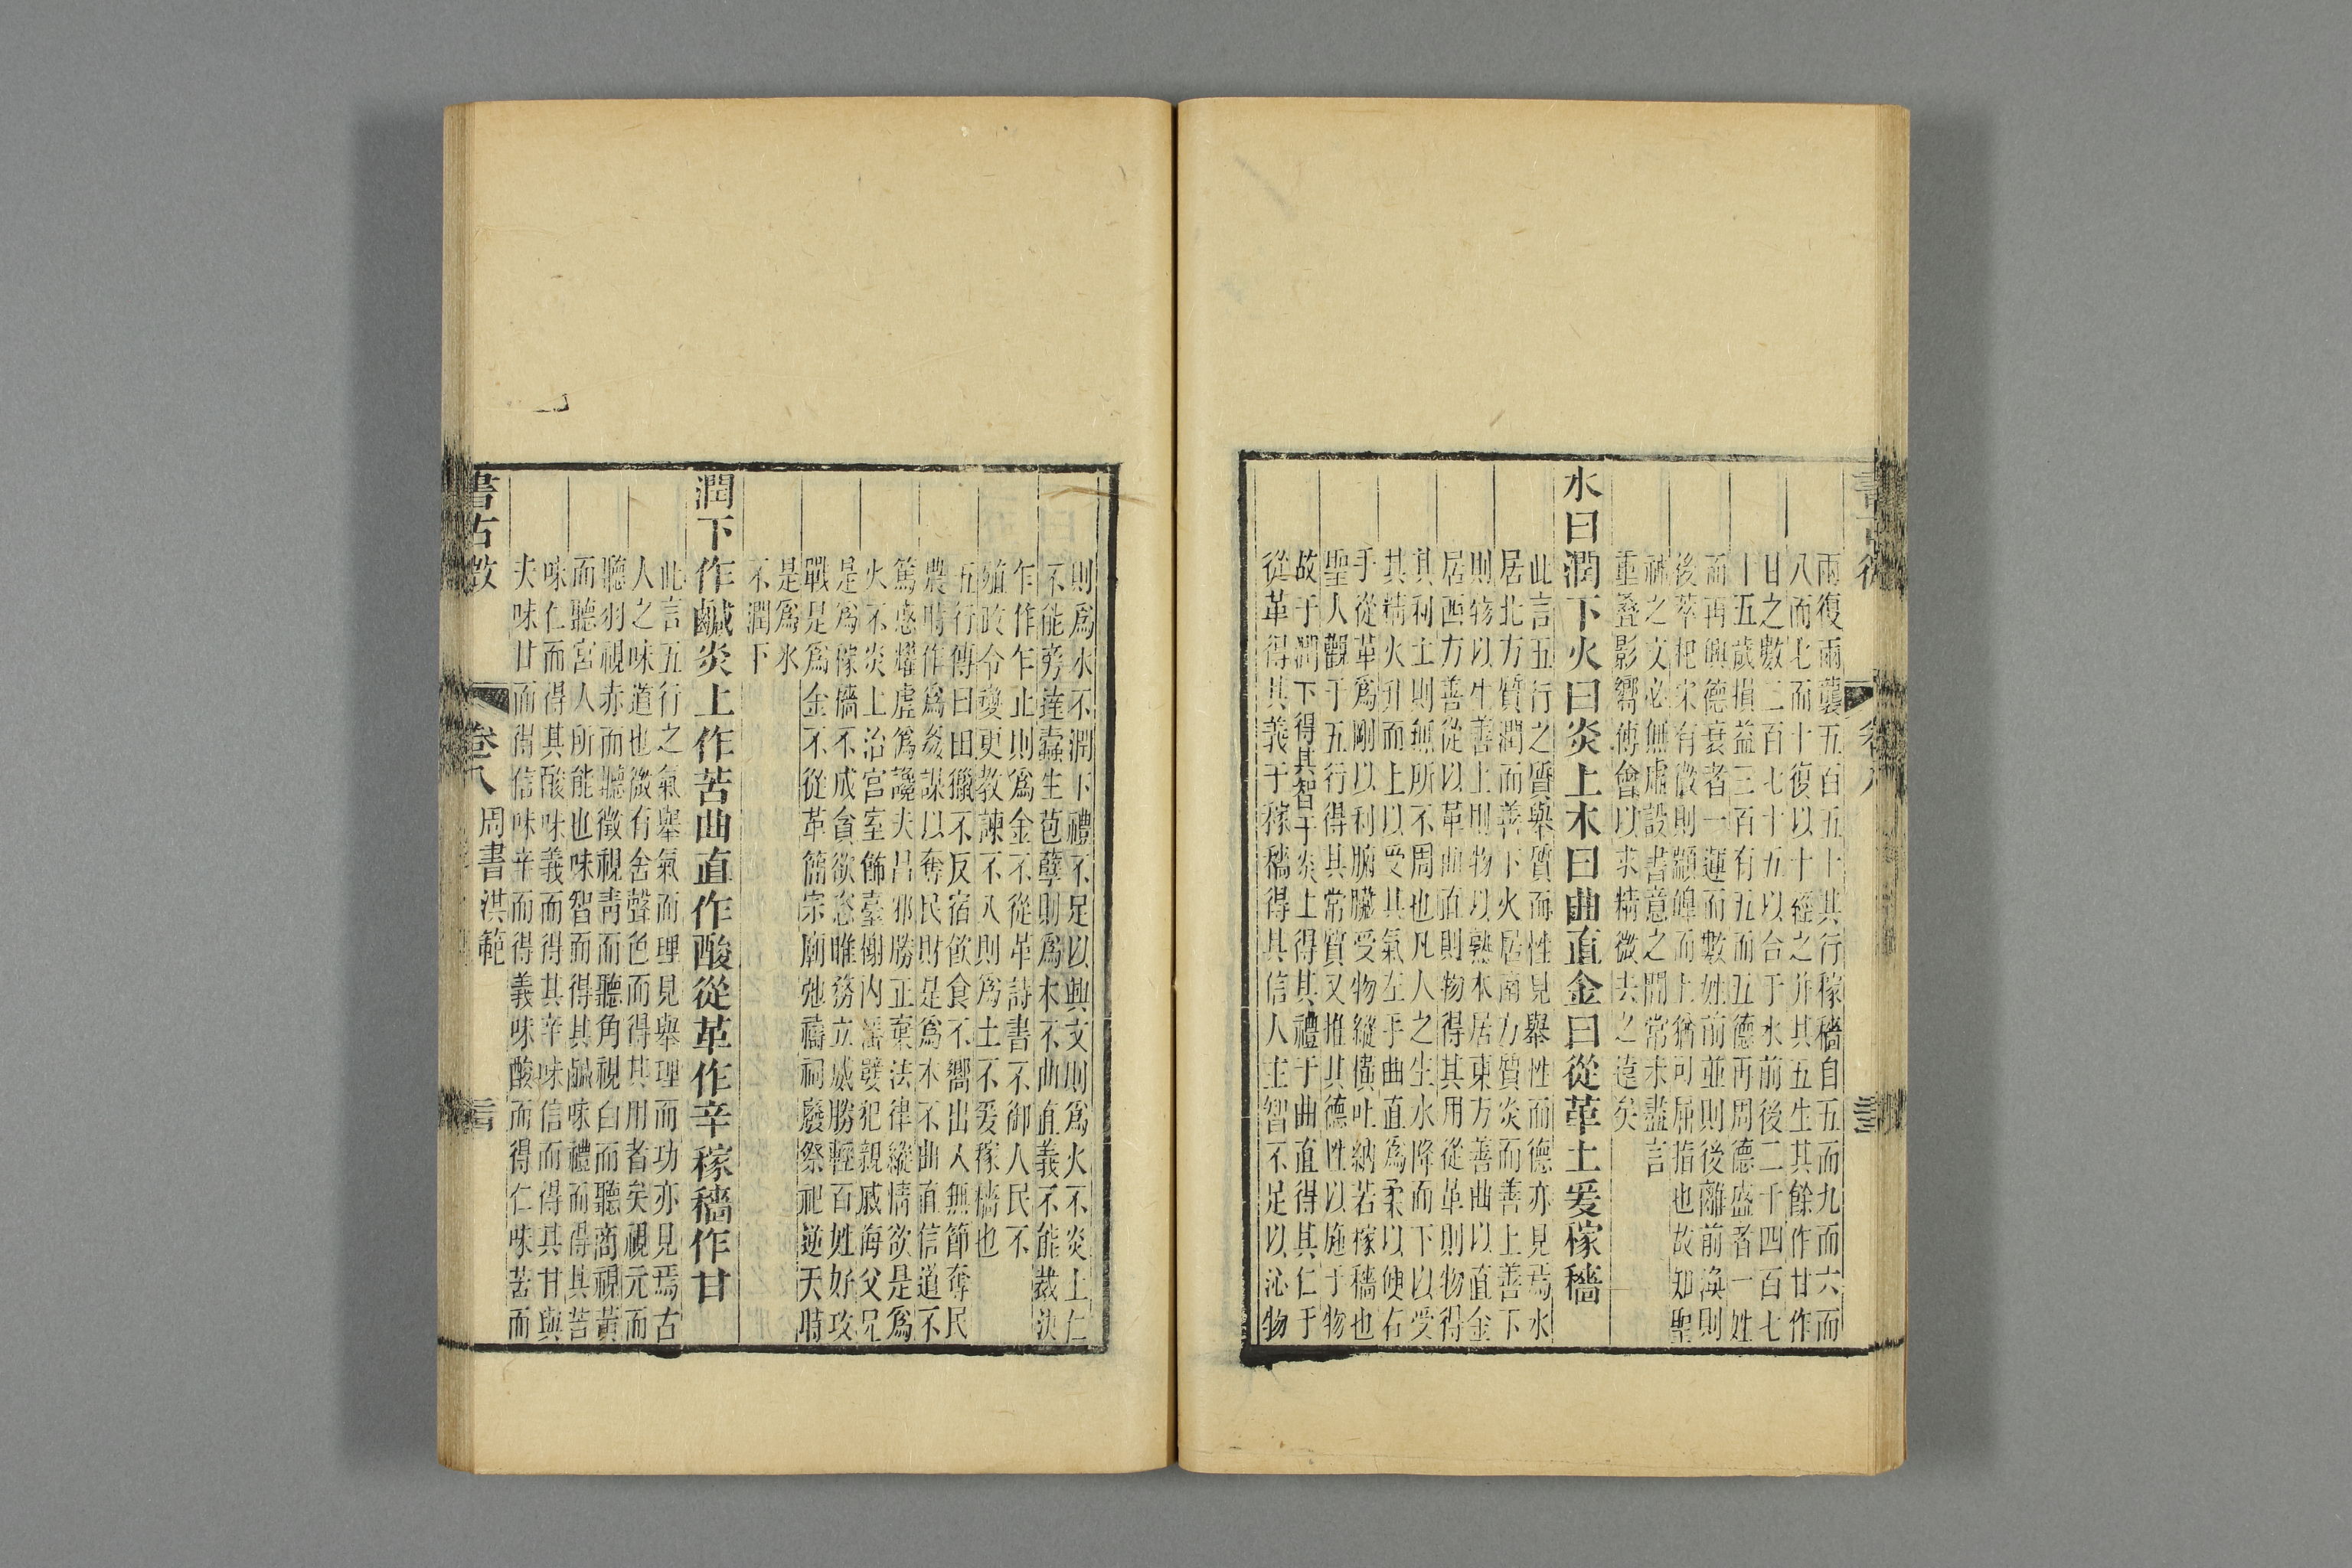 兩復兩襲五百五十其行稼穡自五而九而六而
八而七而十復以十經之并其五生其餘作甘作
甘之數二百七十五以合于水前後二千四百七
十五歲損益三百有五而五德再周德盛者一姓
而再興德衰者一運而數姓前並則後離前渙則
後萃杞宋有徵則顓皥而上猶可屈指也故知聖
神之文必無虛設書意之閒常未盡言
重叠影嚮傅會以求精微去之遠矣
水曰潤下火曰炎上木曰曲直金曰從革土爰稼穡
此言五行之質舉質而性見舉性而德亦見焉水
居北方質潤而善下火居南方質炎而善上善下
則物以生善上則物以熟木居東方善曲以直金
居西方善從以革曲直則物得其用從革則物得
其利土則無所不周也凡人之生水降而下以受
其精火升而上以受其氣左手曲直爲柔以使右
手從革爲剛以利腑臟受物縱橫吐納若稼穡也
聖人觀于五行得其常質又推其德性以施于物
故于潤下得其智于炎上得其禮于曲直得其仁于
從革得其義于稼穡得其信人主智不足以沁物
則爲水不潤下禮不足以興文則爲火不炎上仁
不能旁達蠹生苞孽則爲木不曲直義不能裁決
乍作乍止則爲金不從革詩書不御人民不
殖政令變更教諫不入則爲土不爰稼穡也
五行傳曰田獵不反宿飲食不嚮出入無節奪民
農時作爲姦謀以奪民財是爲木不曲直信道不
篤惑耀虛僞讒夫昌邪勝正棄法律縱情欲是爲
火不炎上治宮室飾臺榭內淫亂犯親戚侮父兄
是爲稼穡不成貪欲恣睢務立威勝輕百姓好攻
戰是爲金不從革簡宗廟弛禱祠廢祭祀逆天時
是爲水
不潤下
潤下作鹹炎上作苦曲直作酸從革作辛稼穡作甘
此言五行之氣舉氣而理見舉理而功亦見焉古
人之味道也微有舍聲色而得其用者矣視元而
聽羽視赤而聽徵視靑而聽角視白而聽商視黃
而聽宮人所能也味智而得其鹹味禮而得其苦
味仁而得其酸味義而得其辛味信而得其甘與
夫味甘而得信味辛而得義味酸而得仁味苦而
書古微
卷八
周書洪範